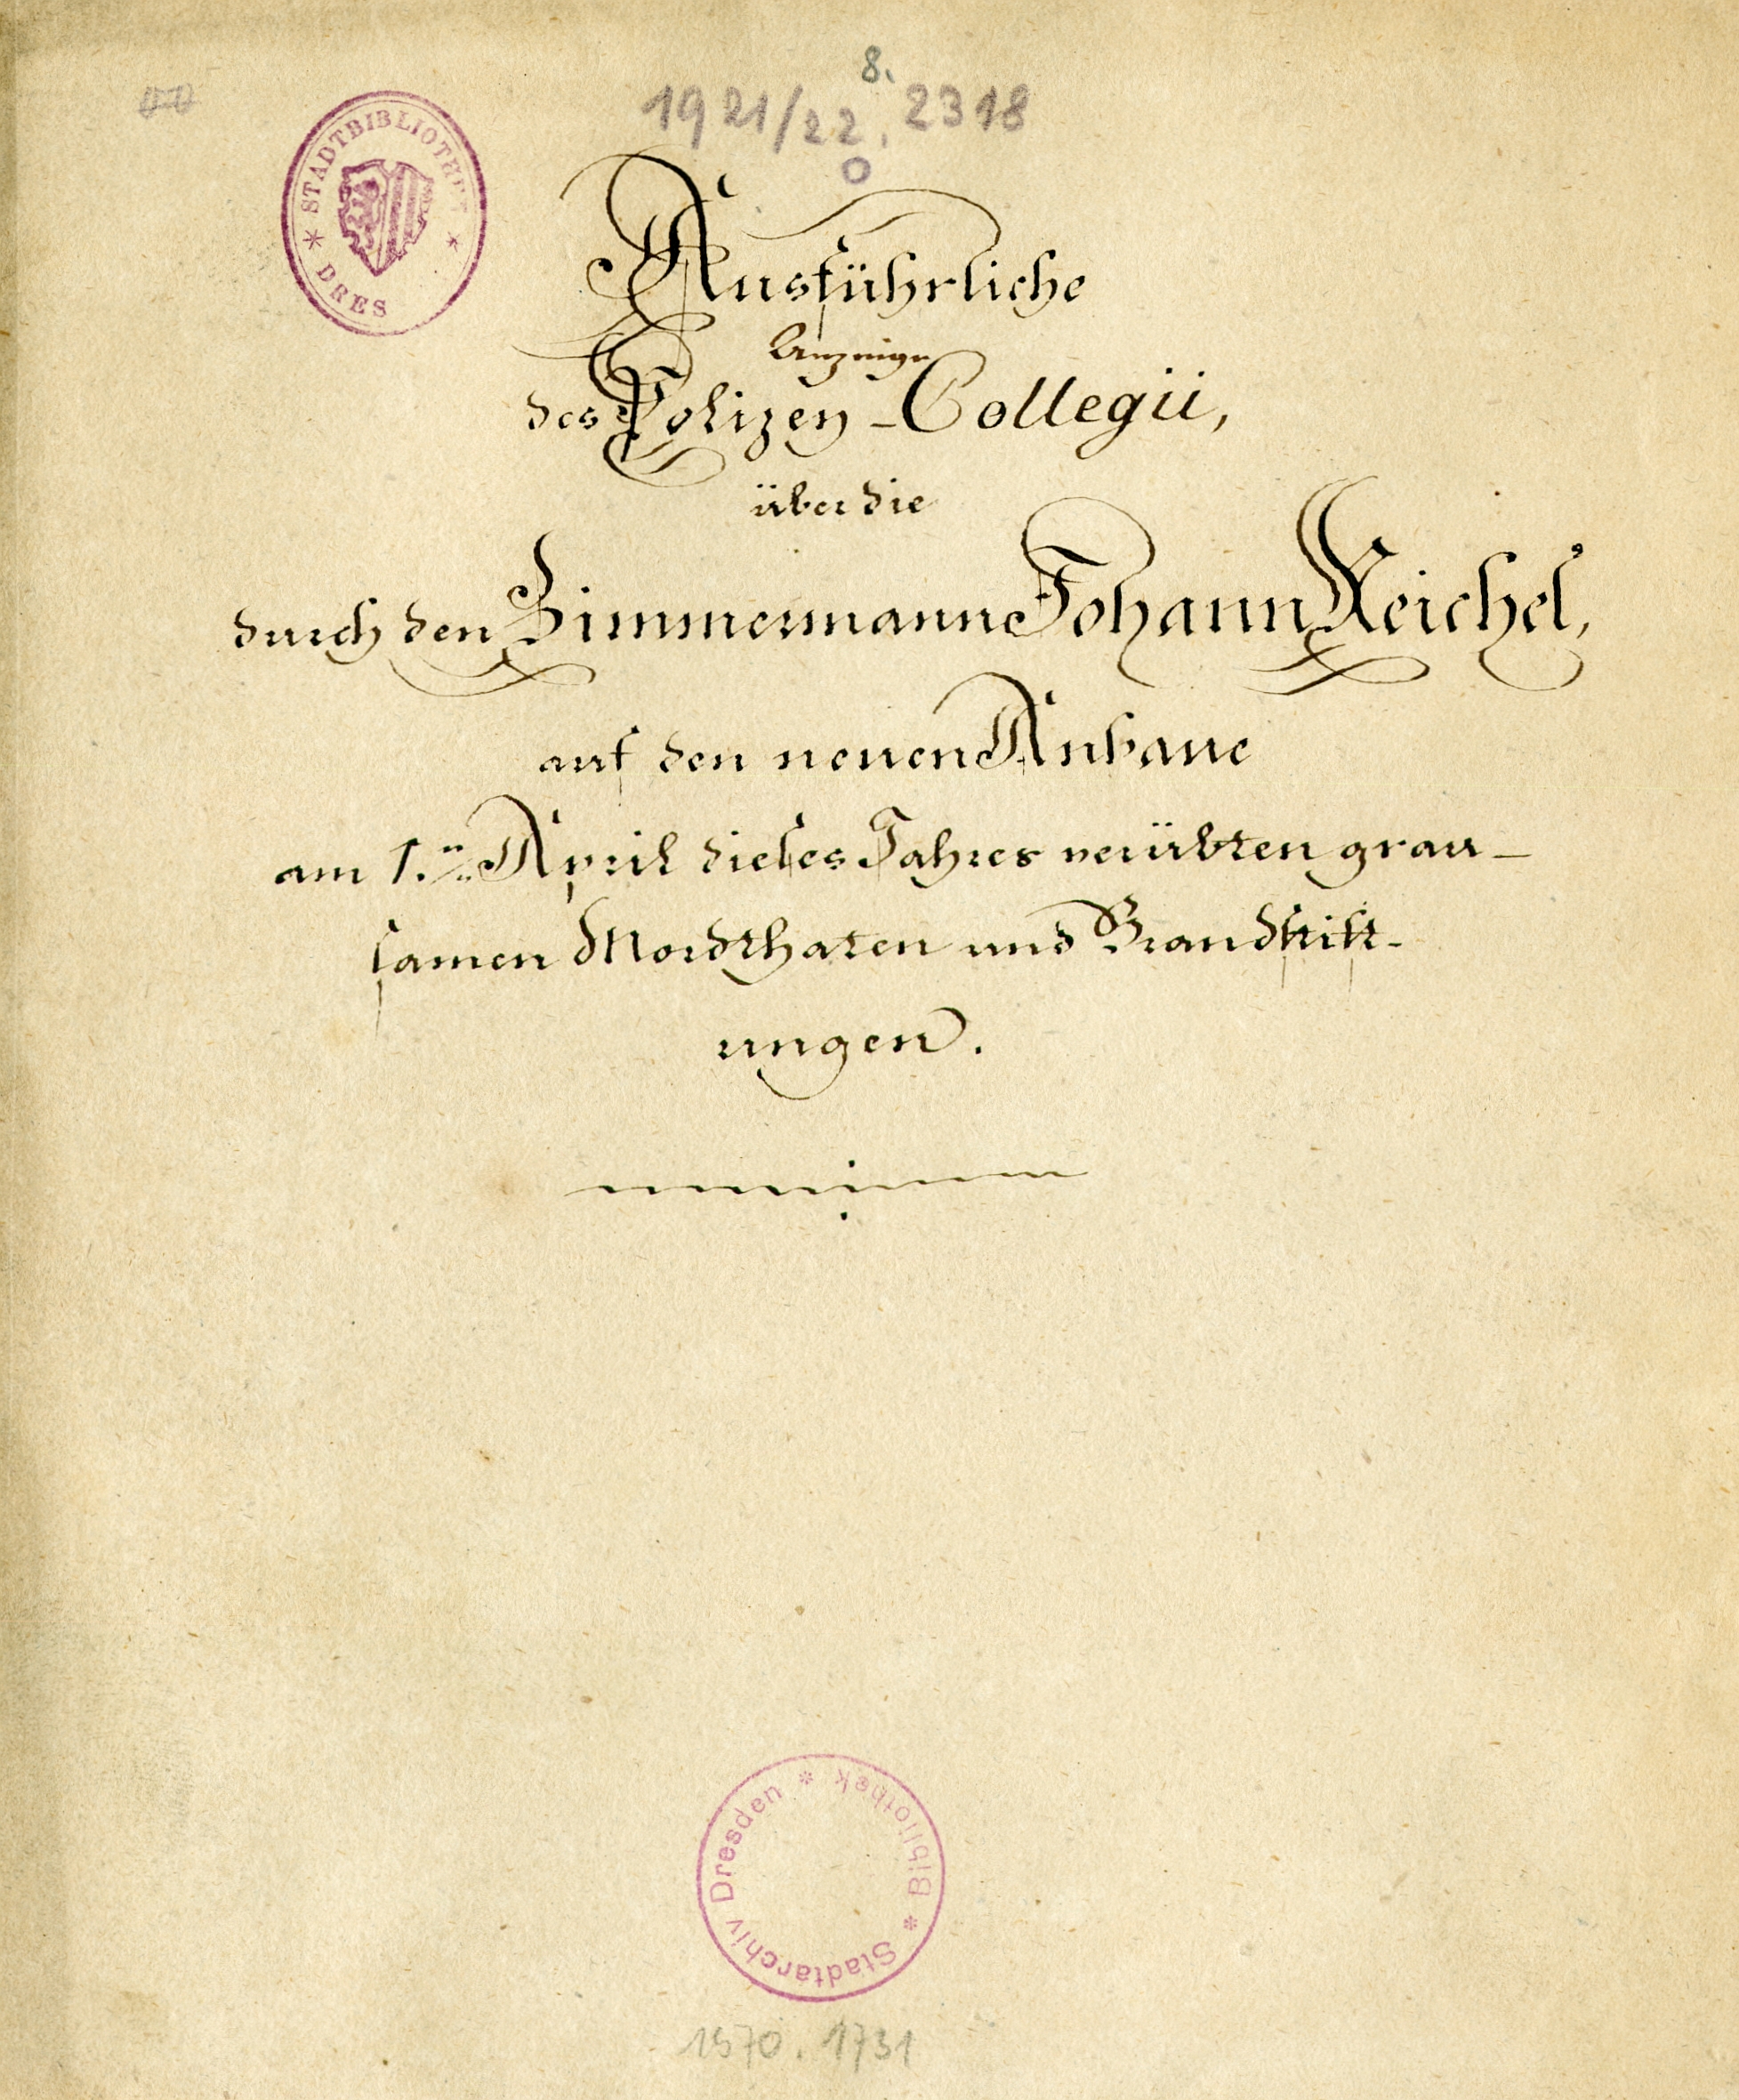 8.
1921/22. 2318
0
STADTBIBLIOTHET * DRES *
Ausführliche
Anzeige
des Polizey-Collegii,
über die
durch den Zimmermann Johann Reichel,
auf den neuen Anbaue
am 1.n April dieses Jahres verübten grau-
samen Mordthaten und Brandstift-
ungen.
Stadtarchiv Dresden * Bibliothek *
1970. 1731